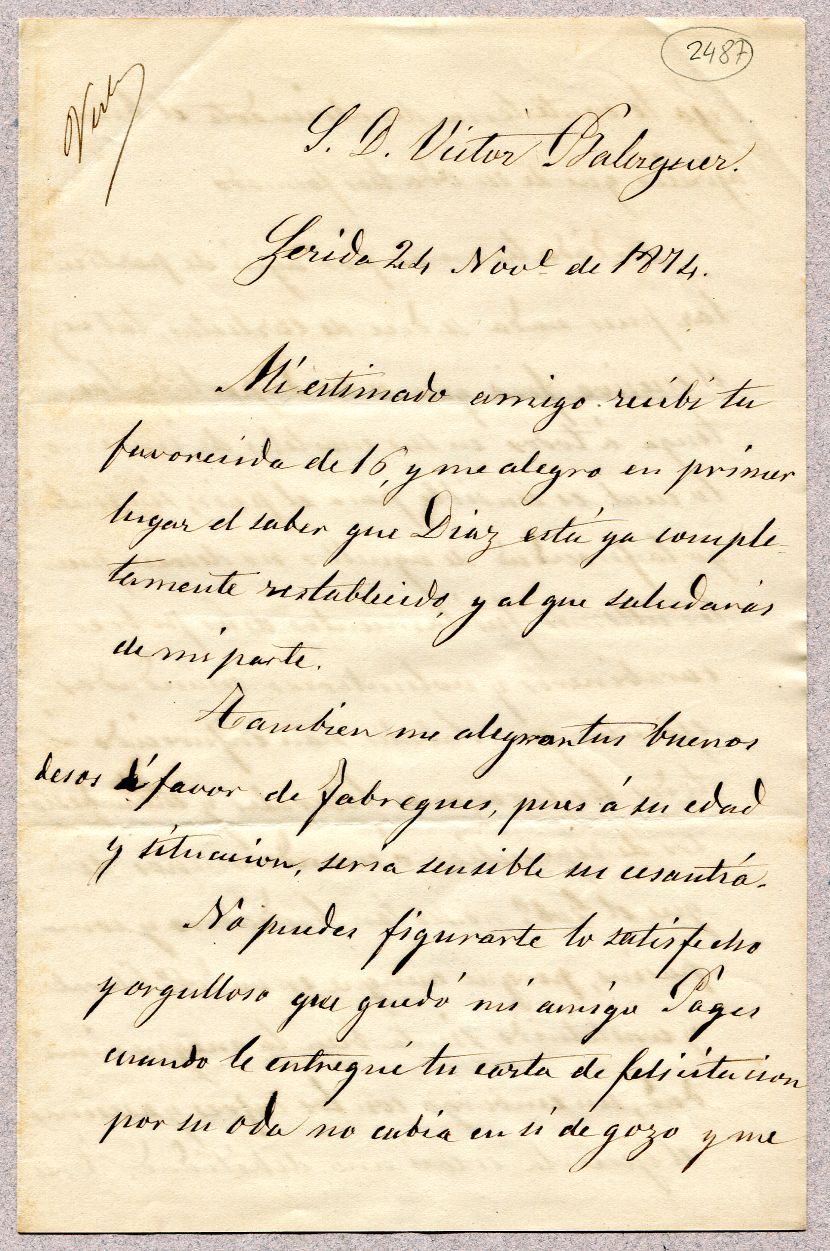 2487
S. D. Victor Balaguer.
Lerida 24 Novl de 1874.
Mi estimado amigo recibi tu
favorecida de 16, y me alegro en primer
lugar el saber que Diaz está ya comple-
tamente restablecido, y al que saludarás
de mi parte.
Tambien me alegran tus buenos
desos á favor de Fabregues, pues á su edad
y situacion, seria sensible su cesantía.
No puedes figurarte lo satisfecho
y orgulloso que quedó mi amigo Pages
cuando le entregué tu carta de felicitacion
por su oda no cabia en si de gozo y me